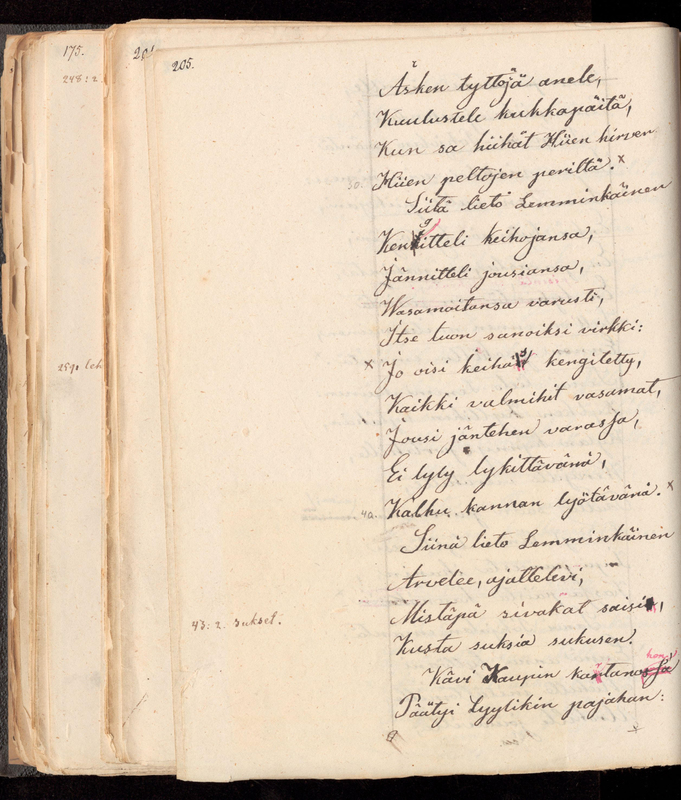 175.
248: 2
201
205.
Äsken tyttöjä anele,
Kuulustele kukkapäitä,
Kun sa hiihät Hiien hirven
30. Hiien peltojen periltä. x
Siitä lieto Lemminkäinen
g
Kenitteli keihojansa,
Jännitteli jousiansa,
Wasamoitansa varusti,
Itse tuon sanoiksi virkki:
x Jo oisi keihäs kengitetty,
Kaikki valmihit vasamat,
Jousi jäntehen varassa,
Ei lyly lykittävänä,
40. Kalhu kannan lyötävänä. x
Siinä lieto Lemminkäinen
Arvelee, ajattelevi,
Mistäpä sivakat saisi,
43: 2. Sukset.
Kusta suksia sukusen.
hon
Kävi Kaupin kartanossa
Päätyi Lyylikin pajahan: